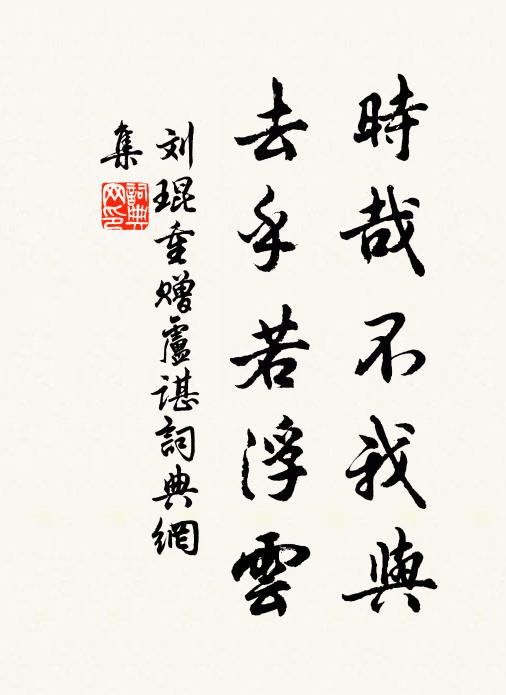 時哉不我與
去乎若浮雲
刘琨重赠盧谌詞典網
集
詞典
网印